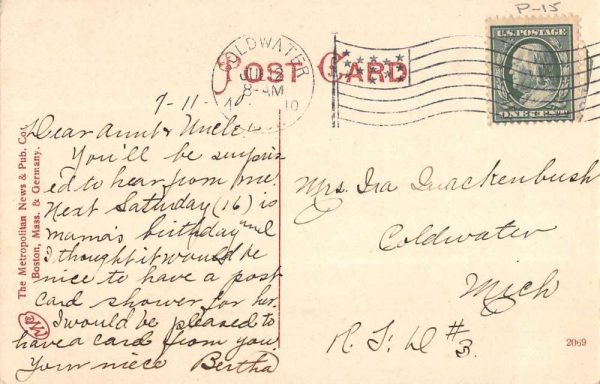 P-15
U.S. POSTAGE
ONE CENT
COLDWATER
JUL 12
8-AM
10
POST CARD
7-11-10
Dear Aunt & Uncle:
You'll be surpris
ed to hear from me.
Next Saturday (16) is
mama's birthday and
I thought it would be
nice to have a post
card shower for her.
I would be pleased to
have a card from you.
Your niece Bertha
Mrs Ira Quackenbush
Coldwater
Mich
R. F. D #3.
The Metropolitan News & Pub. Co.,
Boston, Mass. & Germany.
2069